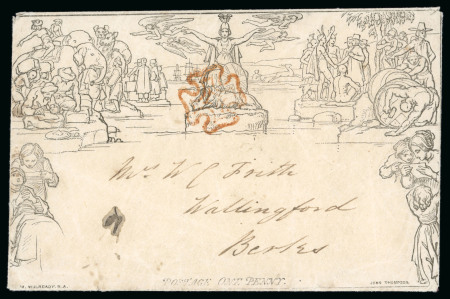 Mrs W C Frith
Wallingford
Berks
POSTAGE ONE PENNY.
W. MULREADY. R.A.
JOHN THOMPSON